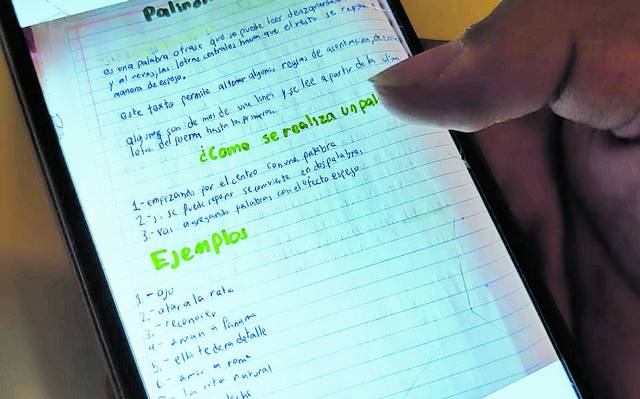 Palindr
es una palabra o frase que se puede leer
y al revez, las letras centrales hacen que el resto se repita
manera de espejo.
Este texto permite alterar algunas reglas de acentuación,
algunos son de mas de una linea y se lee a partir de la ultima
letra del poema hasta la primera.
¿Como se realiza un pal
1- empezando por el centro con una palabra
2-, si se puede repetir se convierte en dos palabras.
3- vas agregando palabras con el efecto espejo
Ejemplos
1.- ojo
2.- atar a la rata
3.- reconocer
4- a Panama
5.- ella te dara detalle
6- amor a roma
7- la ruta natural
leche